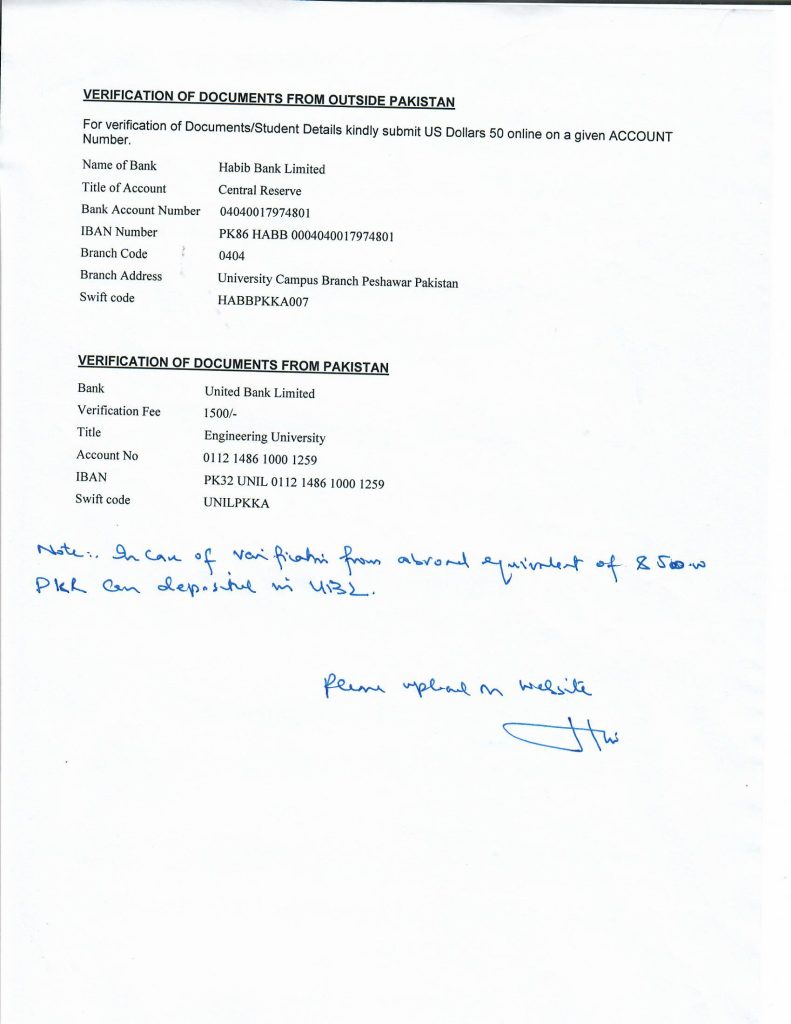 VERIFICATION OF DOCUMENTS FROM OUTSIDE PAKISTAN
For verification of Documents/Student Details kindly submit US Dollars 50 online on a given ACCOUNT
Number.
Name of Bank Habib Bank Limited
Title of Account Central Reserve
Bank Account Number 04040017974801
IBAN Number PK86 HABB 0004040017974801
Branch Code 0404
Branch Address University Campus Branch Peshawar Pakistan
Swift code HABBPKKA007
VERIFICATION OF DOCUMENTS FROM PAKISTAN
Bank United Bank Limited
Verification Fee 1500/-
Title Engineering University
Account No 0112 1486 1000 1259
IBAN PK32 UNIL 0112 1486 1000 1259
Swift code UNILPKKA
Note:. In case of verification from abroad equivalent of
PKR can deposited in UBL.
Please upload on website